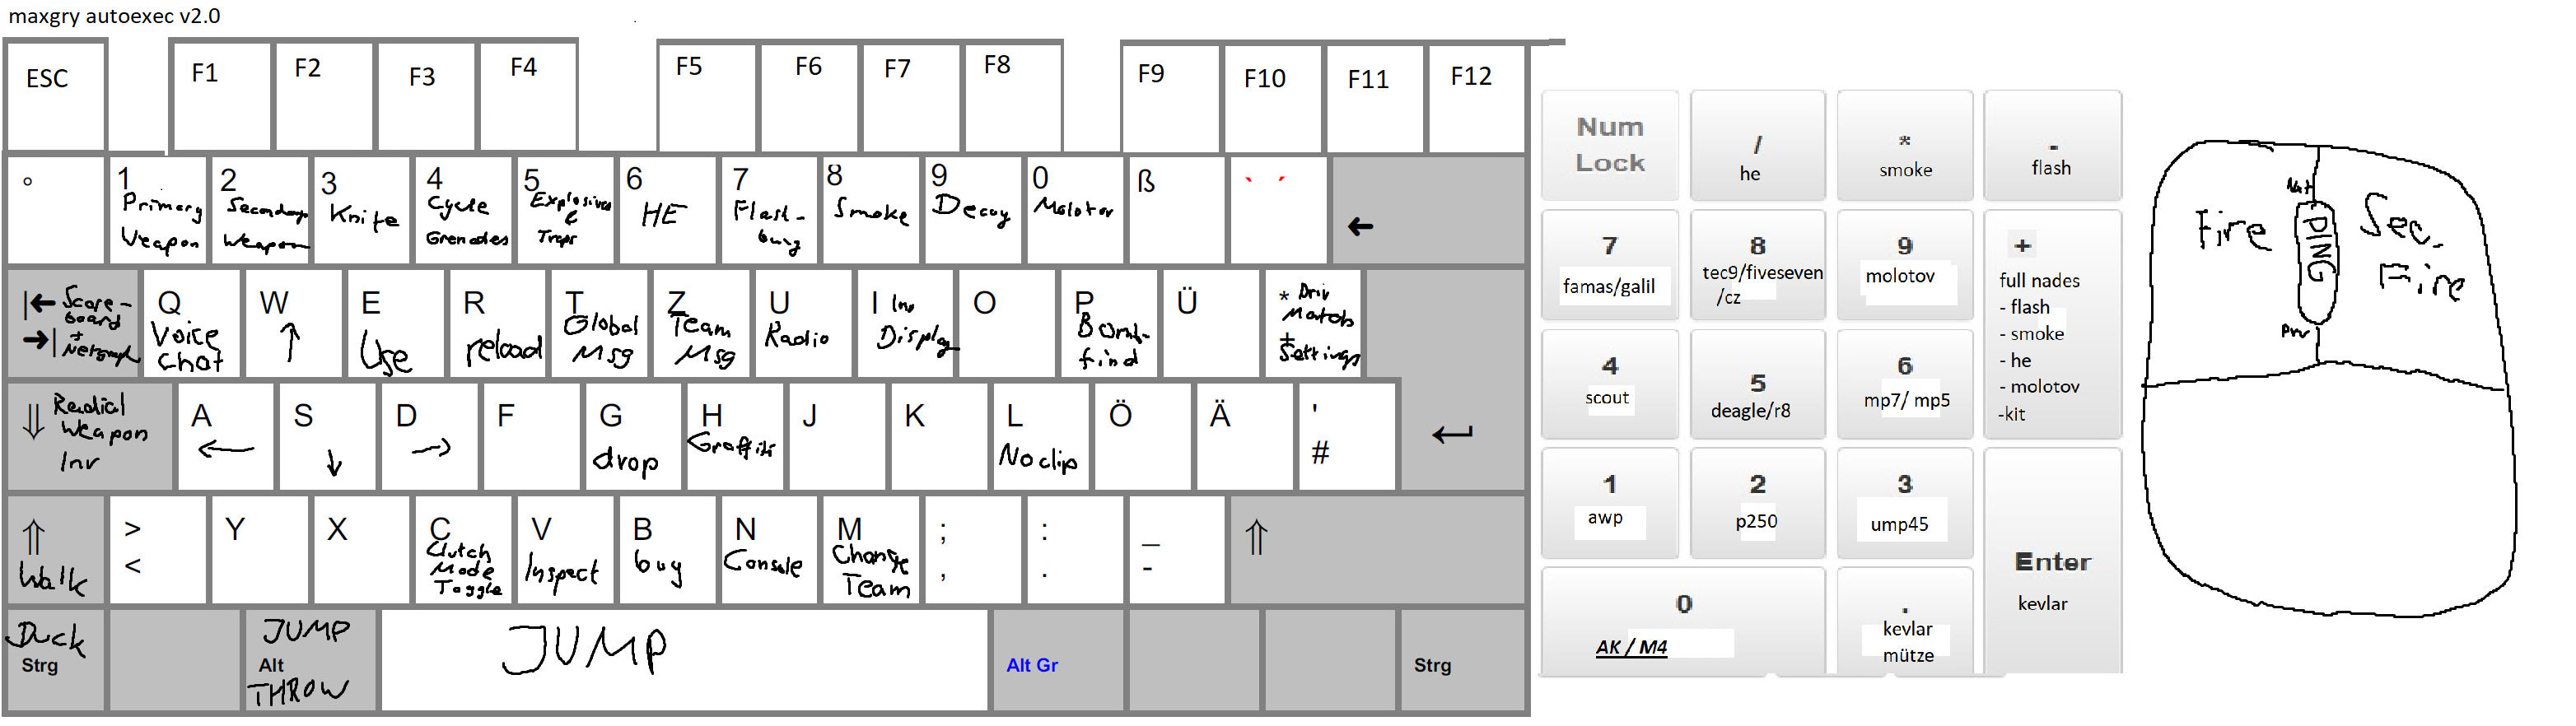 maxgry autoexec v2.0
ESC F1 F2 F3 F4 F5 F6 F7 F8 F9 F10 F11 F12
°
1 Primary Weapon
2 Secondary Weapon
3 Knife
4 Cycle Grenades
5 Explosives & Traps
6 HE
7 Flash-bang
8 Smoke
9 Decoy
0 Molotov
ß
` ´
←
|← →| Score-board + Netgraph
Q Voice Chat
W ↑
E Use
R reload
T Global Msg
Z Team Msg
U Radio
I Inv Display
O
P Bomb-find
Ü
* + Priv Match Settings
⇓ Radial Weapon Inv
A ←
S ↓
D →
F
G drop
H Graffiti
J
K
L Noclip
Ö
Ä
' #
↵
⇑ Walk
> <
Y
X
C Clutch Mode Toggle
V Inspect
B buy
N Console
M Change Team
; ,
: .
_ -
⇑
Duck Strg
JUMP Alt THROW
JUMP
Alt Gr
Strg
Num Lock
/ he
* smoke
- flash
7 famas/galil
8 tec9/fiveseven /cz
9 molotov
+ full nades
- flash
- smoke
- he
- molotov
-kit
4 scout
5 deagle/r8
6 mp7/ mp5
1 awp
2 p250
3 ump45
Enter kevlar
0 AK / M4
. kevlar mütze
Fire
Nxt
PING
Prv
Sec. Fire